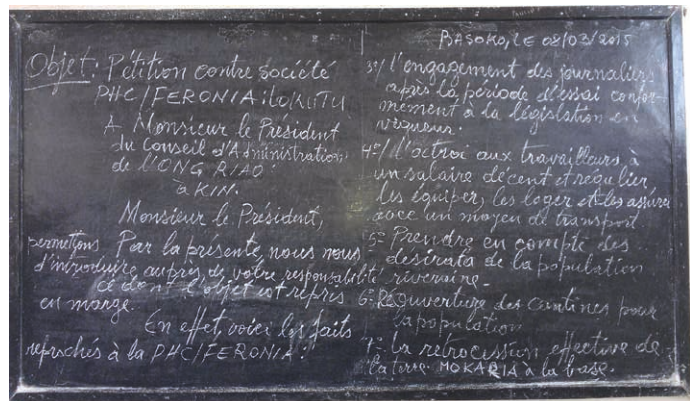 Objet: Pétition contre société
PHC/FERONIA: LOKUTU
A Monsieur le Président
du Conseil d'Administration
de l'ONG RIAO
à KIN.
Monsieur le Président,
Par la présente, nous nous
permettons
d'introduire auprès de votre responsabilité
ce dont l'objet est repris
en marge.
En effet, voici les faits
reprochés à la PHC/FERONIA:
BASOKO, LE 08/03/2015
3°/ l'engagement des journaliers
après la période d'essai confor-
mément à la législation en
vigueur.
4°/ l'octroi aux travailleurs à
un salaire décent et régulier
les équiper, les loger et les assurer
avec un moyen de transport
5° Prendre en compte des
désirata de la population
riveraine.
6° Réouverture des Cantines pour
la population
7° La rétrocession effective de
la terre MOKARIA à la base.